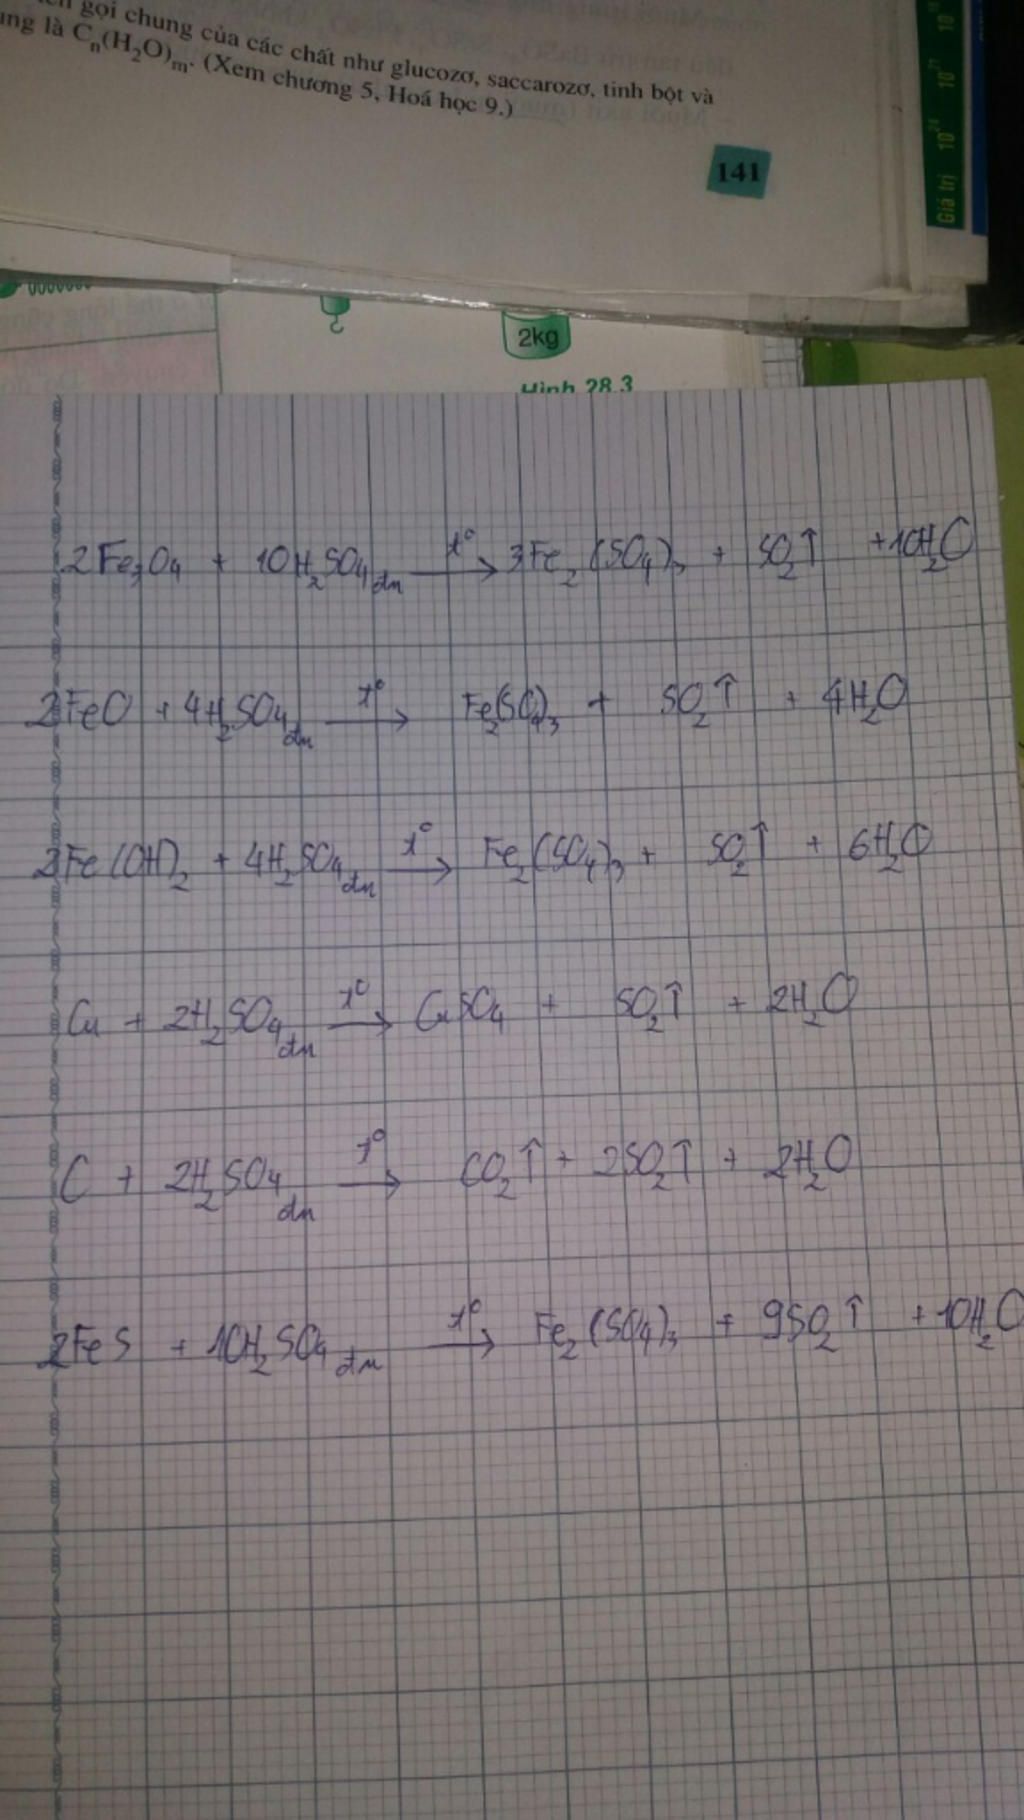 gọi chung của các chất như glucozơ, saccarozơ, tinh bột và
là Cn(H2O)m. (Xem chương 5, Hoá học 9.)
141
Giá trị 10²⁴ 10²¹
2kg
Hình 28.3
2Fe3O4 + 10H2SO4 đn t° → 3Fe2(SO4)3 + SO2↑ + 10H2O
2FeO + 4H2SO4 đn t° → Fe2(SO4)3 + SO2↑ + 4H2O
2Fe(OH)2 + 4H2SO4 đn t° → Fe2(SO4)3 + SO2↑ + 6H2O
Cu + 2H2SO4 đn t° → CuSO4 + SO2↑ + 2H2O
C + 2H2SO4 đn t° → CO2↑ + 2SO2↑ + 2H2O
2FeS + 10H2SO4 đn t° → Fe2(SO4)3 + 9SO2↑ + 10H2O